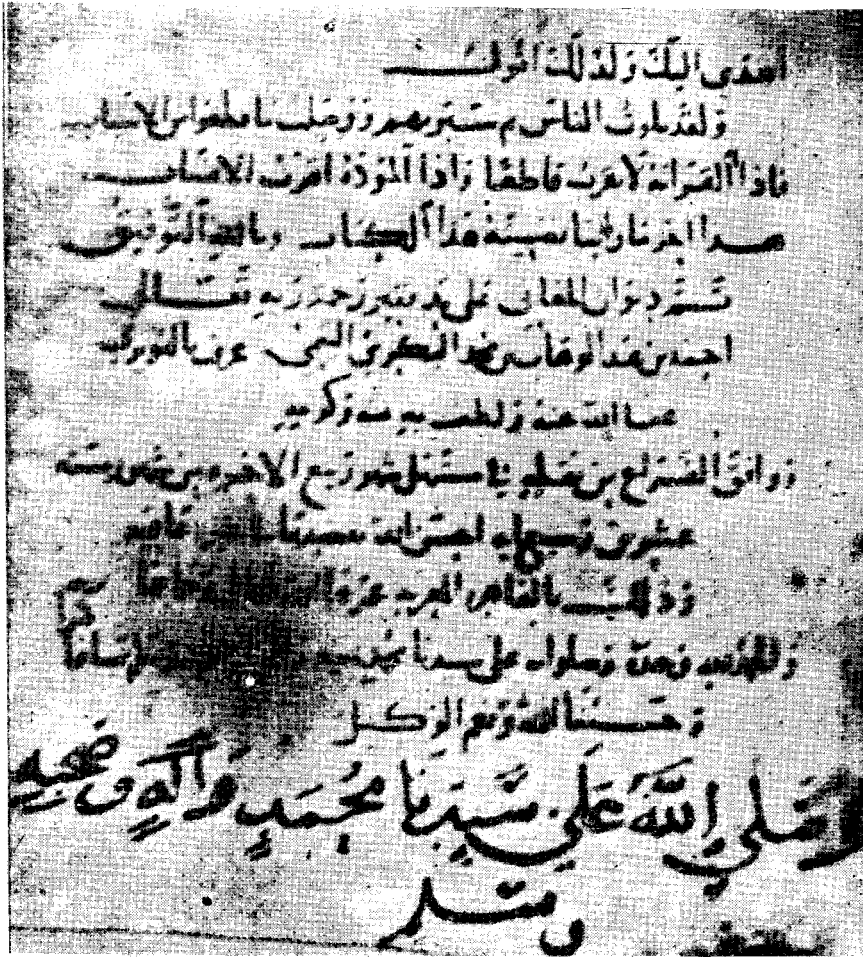 اهدى اليك ولذلك اقول
ولقد بلوت الناس ثم سبرتهم ووصلت ما قطعوا من الاسباب
فاذا القرابة لا تقرب قاطعا واذا المودة اقرب الانساب
هذا اخر ما رأينا تضمينه هذا الكتاب وبالله التوفيق
تم ديوان المعاني على يد فقير رحمة ربه تعالى
احمد بن عبد الوهاب بن محمد البكري التيمي عرف بالنويري
عفا الله عنه ولطف به بمنه وكرمه
ووافق الفراغ من تعليقه في مستهل شهر ربيع الاخر من شهور سنة
عشرين وسبعمائة احسن الله
وذلك بالقاهرة المعزية
والحمد لله وحده وصلواته على سيدنا محمد كثيرا
وحسبنا الله ونعم الوكيل
وصلى الله على سيدنا محمد واله وصحبه
وسلم